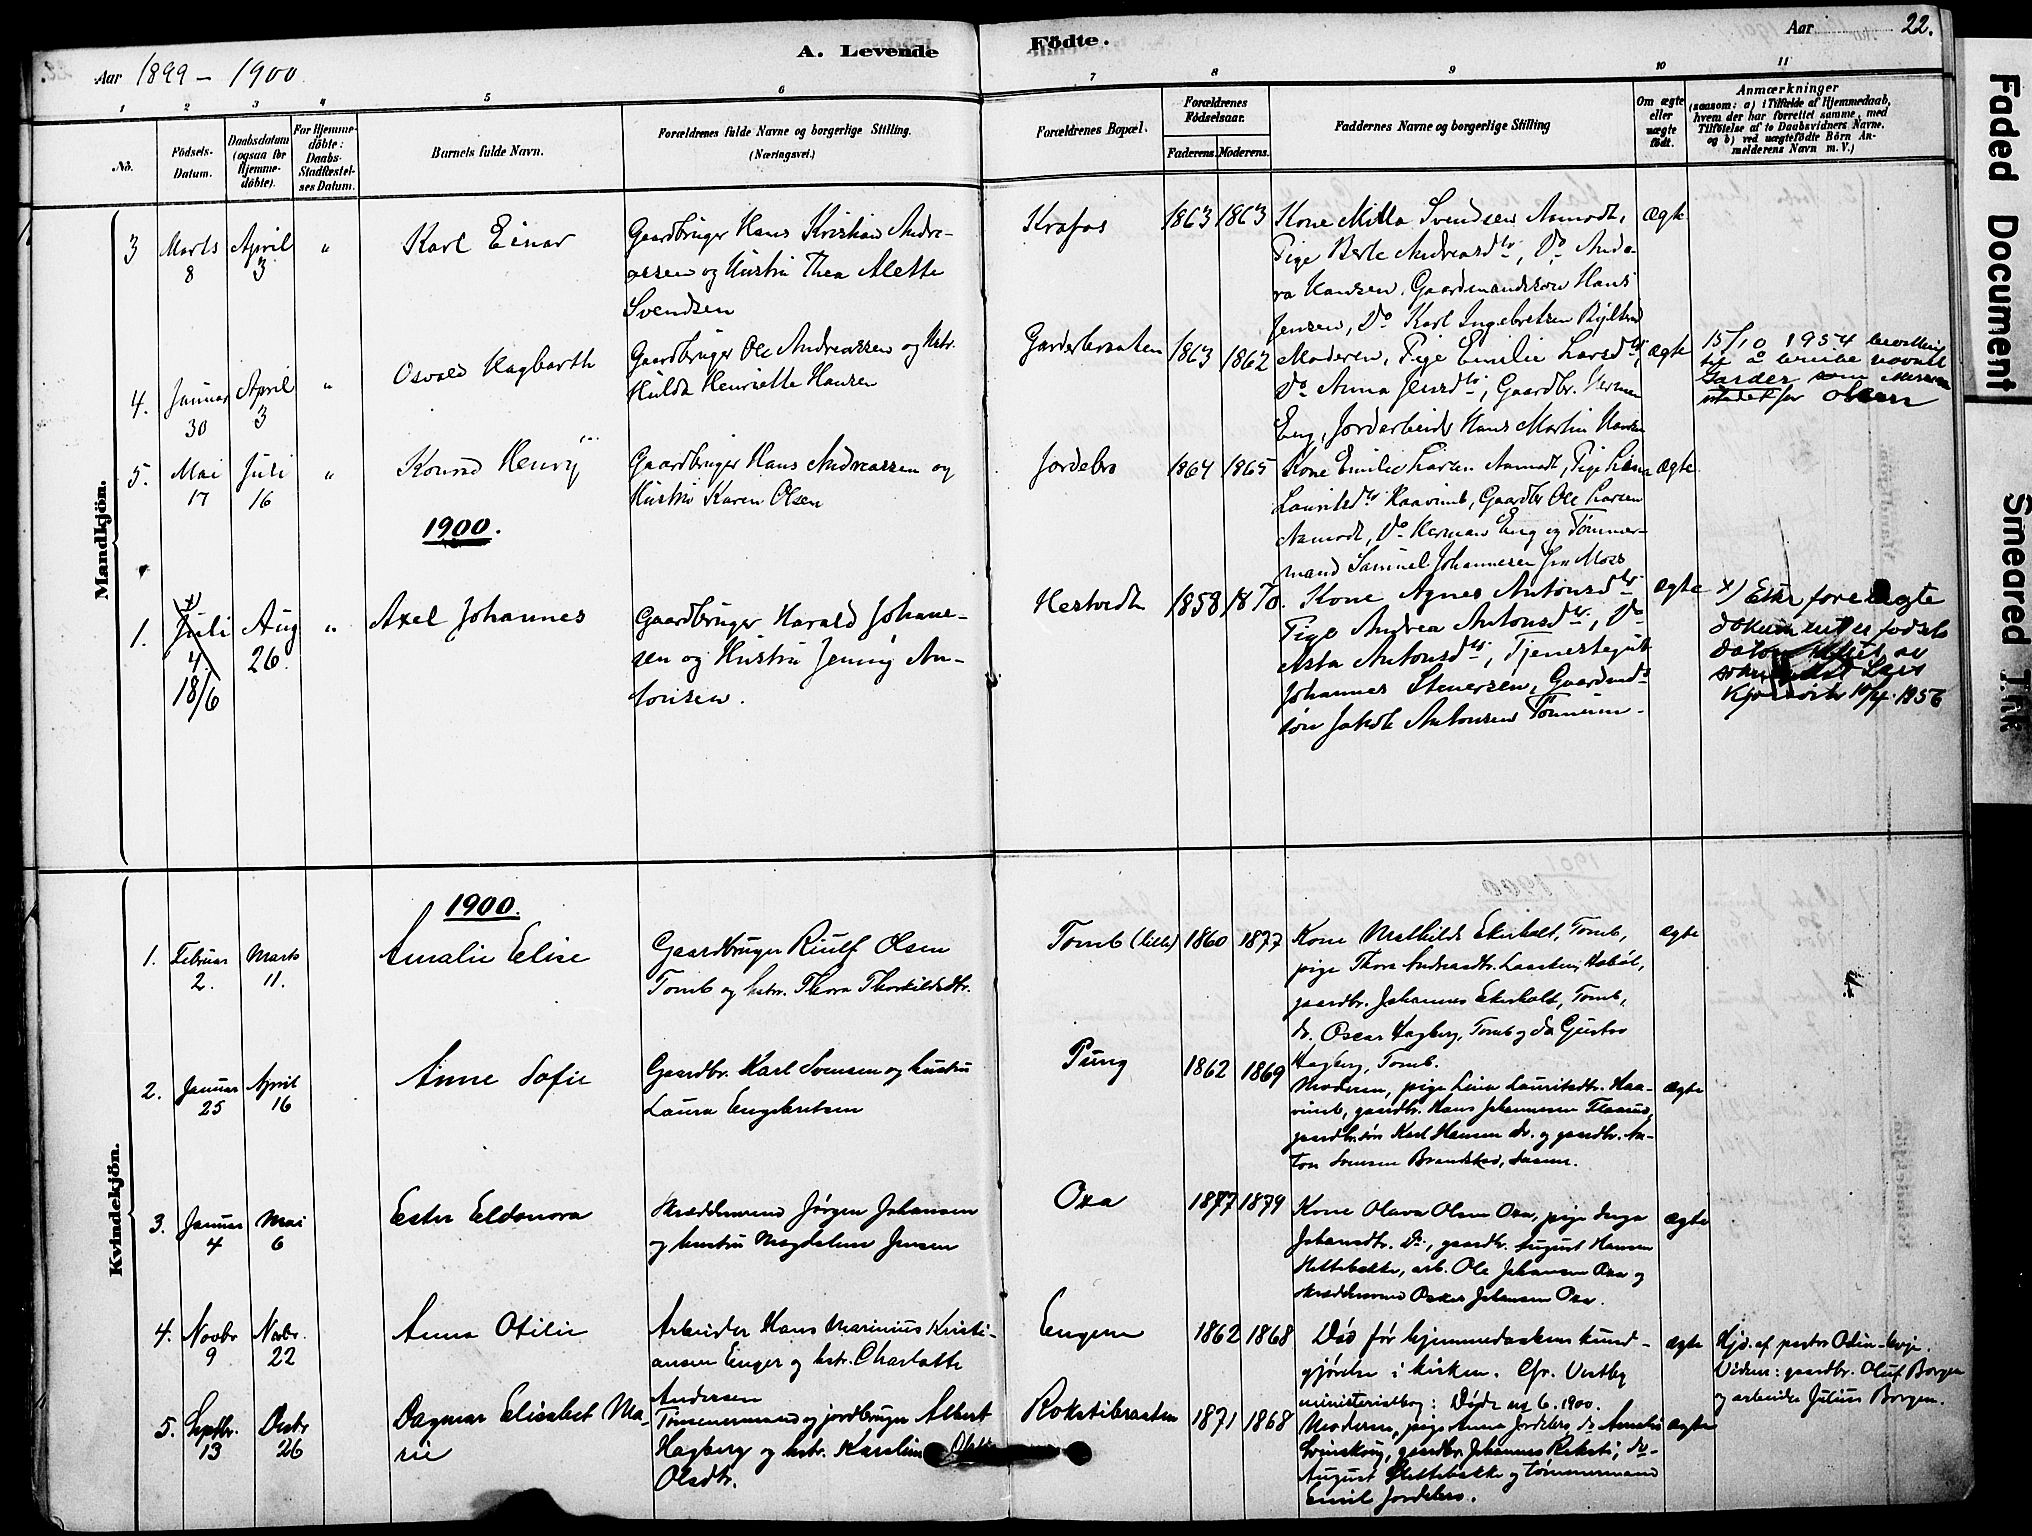 Aar 1899 - 1900
A. Levende
Födte.
Aar
22.
1 2 3 4 5 6 7 8 9 10 11
No.
Födsels-
Datum.
Daabsdatum
(ogsaa for
Hjemme-
döbte).
For Hjemme-
döbte:
Daabs-
Stadfæstel-
ses Datum.
Barnets fulde Navn.
Forældrenes fulde Navne og borgerlige Stilling.
(Næringsvei.)
Forældrenes Bopæl.
Forældrenes
Födselsaar.
Faderens. Moderens.
Faddernes Navne og borgerlige Stilling
Om ægte
eller
uægte
födt.
Anmærkninger
(saasom: a) i Tilfælde af Hjemmedaab,
hvem der har forrettet samme, med
Tilföielse af to Daabsvidners Navne,
og b) ved uægtefödte Börn An-
melderens Navn m. V.)
Mandkjön.
3 Marts 8 April 3 " Karl Einar
Gaardbruger Hans Kristian Andre-
assen og Hustru Thea Alette
Svendsen
Krafos 1863 1863
Kone Milla Svendsen Aamodt,
Pige Berte Andreasdtr, Do Anda-
ra Hansen, Gaardmandssøn Hans
Jensen, Do Karl Ingebretsen
Ægte
4. Januar 30 April 3 " Osvald Hagbarth
Gaardbruger Ole Andreassen og Hstr.
Hulda Henriette Hansen
Garderbraaten 1863 1862
Moderen, Pige Emilie Larsdtr,
Do Anna Jensdtr, Gaardbr. Herman
Eng, Jordarbeider Hans Martin Hansen
ægte
15/10 1954 bevilling
til å bruke navnet
Garder som
istedet for Olsen
5. Mai 17 Juli 16 " Konrad Henry
Gaardbruger Hans Andreassen og
Hustru Karen Olsen
Jordebro 1864 1865
Kone Emilie Larsen Aamodt, Pige Lina
Lauritsdtr Haavimb, Gaardbr Ole Larsen
Aamodt, Do Herman Eng og Tømmer-
mand Samuel Johannesen fra Moss
Ægte
1900.
1. x) Juli 4. 18/6 Aug 26. " Axel Johannes
Gaardbruger Harald Johane-
sen og Hustru Jenny An-
tonsen.
Hestvedt 1858 1870
Kone Agnes Antonsdtr
Pige Andrea Antonsdtr, Do
Asta Antonsdtr, Tjenestegut
Johannes Stenersen, Gaardmds
søn Jakob Antonsen
ægte
x) Etter forelagte
dokumenter fødsels
10/4 1956
Kvindekjön.
1900.
1. Februar 2. Marts 11. Amalie Elise
Gaardbruger Riulf Olsen
Tomb og hstr. Thora Thorkildsdtr.
Tomb (lille) 1860 1877
Kone Mathilde Ekeholt, Tomb,
pige Thora Andreasdtr. Haabøl,
gaardbr. Johannes Ekeholt, Tomb,
do. Oscar Hagberg, Tomb og do Gustav
Hagberg, Tomb.
ægte
2. Januar 25 April 16 Anne Sofie
Gaardbr. Karl Svensen og hustru
Laura Engebretsen
Pung 1862 1869
Moderen, pige Lina Lauritsdtr. Haa-
vimb, gaardbr. Hans Johannesen
gaardbr.søn Karl Hansen do. og gaardbr. An-
ton Svensen
ægte
3. Januar 4 Mai 6 Ester Eldonora
Skræddersvend Jørgen Johansen
og hustru Magdalene Jensen
Oxa 1877 1879
Kone Olava Olsen Oxa, pige Inga
Johansdtr. Do., gaardbr. August Hansen
Hettebakke, arb. Ole Johansen Oxa og
skræddersvend Oskar Johansen Oxa.
ægte
4. Novbr 9 Novbr. 22 Anna Otilie
Arbeider Hans Marinius Kristi-
ansen Enger og hstr. Charlotte
Andersen
Engene 1862 1868
Død før hjemmedaabens kund-
gjørelse i kirken. Cfr. Vestby
ministerialbog: Døde no 6. 1900.
ægte
Hjd. af pastor Odin
Vidner: gaardbr. Oluf Borgen
og arbeider Julius Borgen.
5. Septbr. 13 Decbr 26 Dagmar Elisabet Ma-
rie
Tømmermand og jordbruger Albert
Hagberg og hstr. Karoline Olette
Olsdtr.
Rokstibraaten 1871 1868
Moderen, pige Anna Jordebro do Amalie
Svinskoug, gaardbr. Johannes Roksti, do
August Hettebakke og tømmermand
Emil Jordebro.
ægte
Faded Document
Smeared Ink